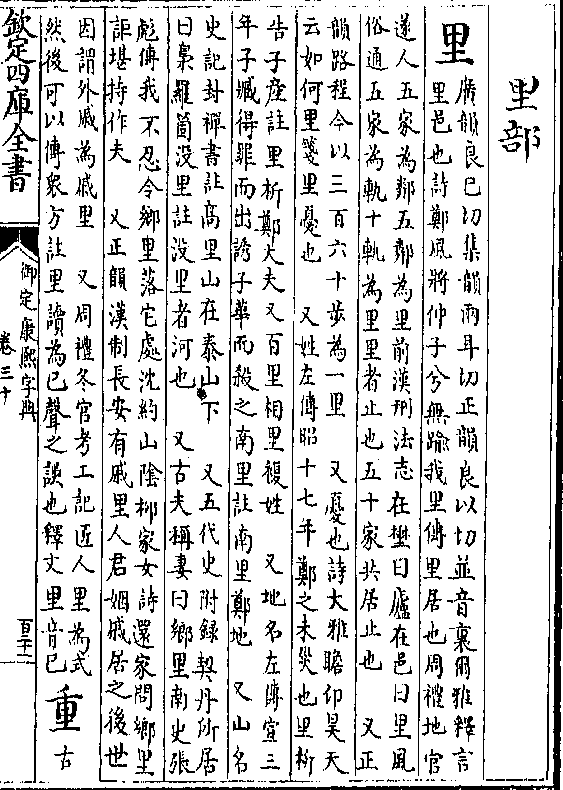 里部
里
廣韻良巳切集韻兩耳切正韻良以切並音裏爾雅釋言
里邑也詩鄭風將仲子兮無踰我里傳里居也周禮地官
遂人五家為鄰五鄰為里前漢刑法志在壄曰廬在邑曰里風
俗通五家為軌十軌為里里者止也五十家共居止也 又正
韻路程今以三百六十步為一里 又憂也詩大雅瞻卬昊天
云如何里箋里憂也 又姓左傳昭十七年鄭之未災也里析
告子產註里析鄭大夫又百里相里複姓 又地名左傳宣三
年子臧得罪而出誘子華而殺之南里註南里鄭地 又山名
史記封禪書註高里山在泰山下 又五代史附録契丹所居
曰梟羅箇没里註没里者河也 又古夫稱妻曰鄉里南史張
彪傳我不忍令鄉里落它處沈約山陰柳家女詩還家問鄉里
詎堪持作夫 又正韻漢制長安有戚里人君姻戚居之後世
因謂外戚為戚里 又周禮冬官考工記匠人里為式
然後可以傅衆方註里讀為已聲之誤也釋文里音巳
重 古
欽定四庫全書
御定康熙字典
卷三十